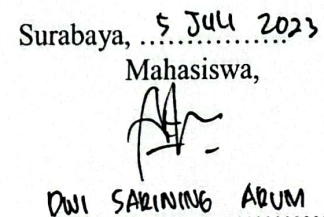 Surabaya, 5 JULI 2023
Mahasiswa,
DWI SARINING ARUM